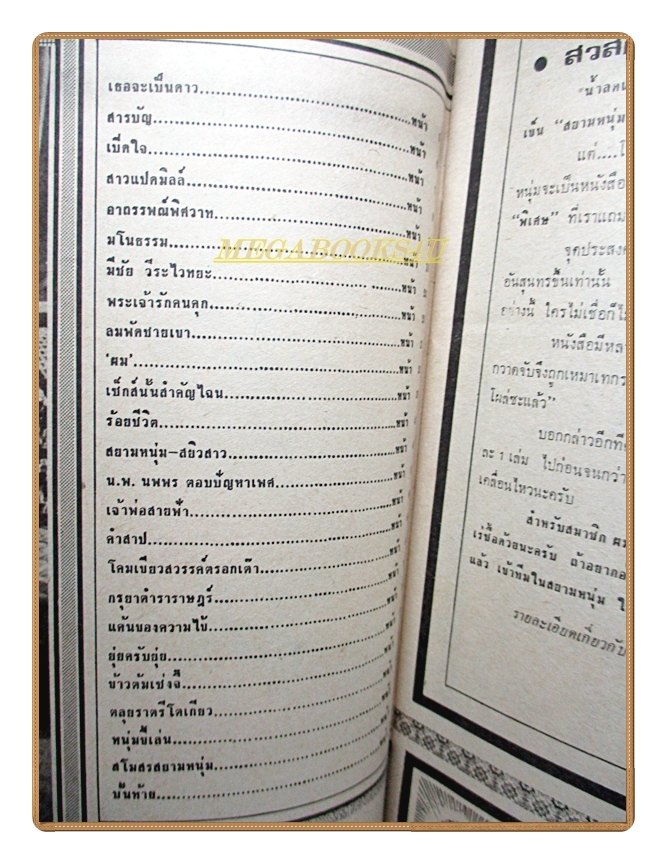 เธอจะเป็นดาว........หน้า
สารบัญ........หน้า
เปิดใจ........หน้า
สาวแปดมิลล์........หน้า
อาถรรพณ์พิศวาท........หน้า
มโนธรรม........หน้า
MEGABOOKS4U
มีชัย วีระไวทยะ........หน้า
พระเจ้ารักคนคุก........หน้า
ลมพัดชายเขา........หน้า
'ผม'........หน้า
เซ็กส์นั้นสำคัญไฉน........หน้า
ร้อยชีวิต........หน้า
สยามหนุ่ม–สยิวสาว........หน้า
น.พ. นพพร ตอบปัญหาเพศ........หน้า
เจ้าพ่อสายฟ้า........หน้า
คำสาป........หน้า
โคมเขียวสวรรค์ตรอกเต๊า........หน้า
กรุยาตำราราษฎร์........หน้า
แด้นของความไข้........หน้า
ยุ่ยครับยุ่ย........หน้า
ข้าวต้มเซ่งจี๊........หน้า
ตลุยราตรีโตเกียว........หน้า
หนุ่มขี้เล่น........หน้า
สโมสรสยามหนุ่ม........หน้า
บั้นท้าย........หน้า
• สวัส
น้าสดน
เข็น "สยามหนุ่ม
แต่....โ
หนุ่มจะเป็นหนังสือ
"พิเศษ" ที่เราแถม
จุดประสงค
อันสุนทรขึ้นเท่านั้น
อย่างนี้ ใครไม่เชื่อก็ไ
หนังสือมีหล
กวาดจับจึงถูกเหมาเทกร
โผล่ซะแล้ว"
บอกกล่าวอีกที
ละ 1 เล่ม ไปก่อนจนกว่า
เคลื่อนไหวนะครับ
สำหรับสมาชิก ผม
เร่ซื้อด้วยนะครับ ถ้าอยากอ
แล้ว เข้าทีมในสยามหนุ่ม ใ
รายละเอียดเกี่ยวกับ